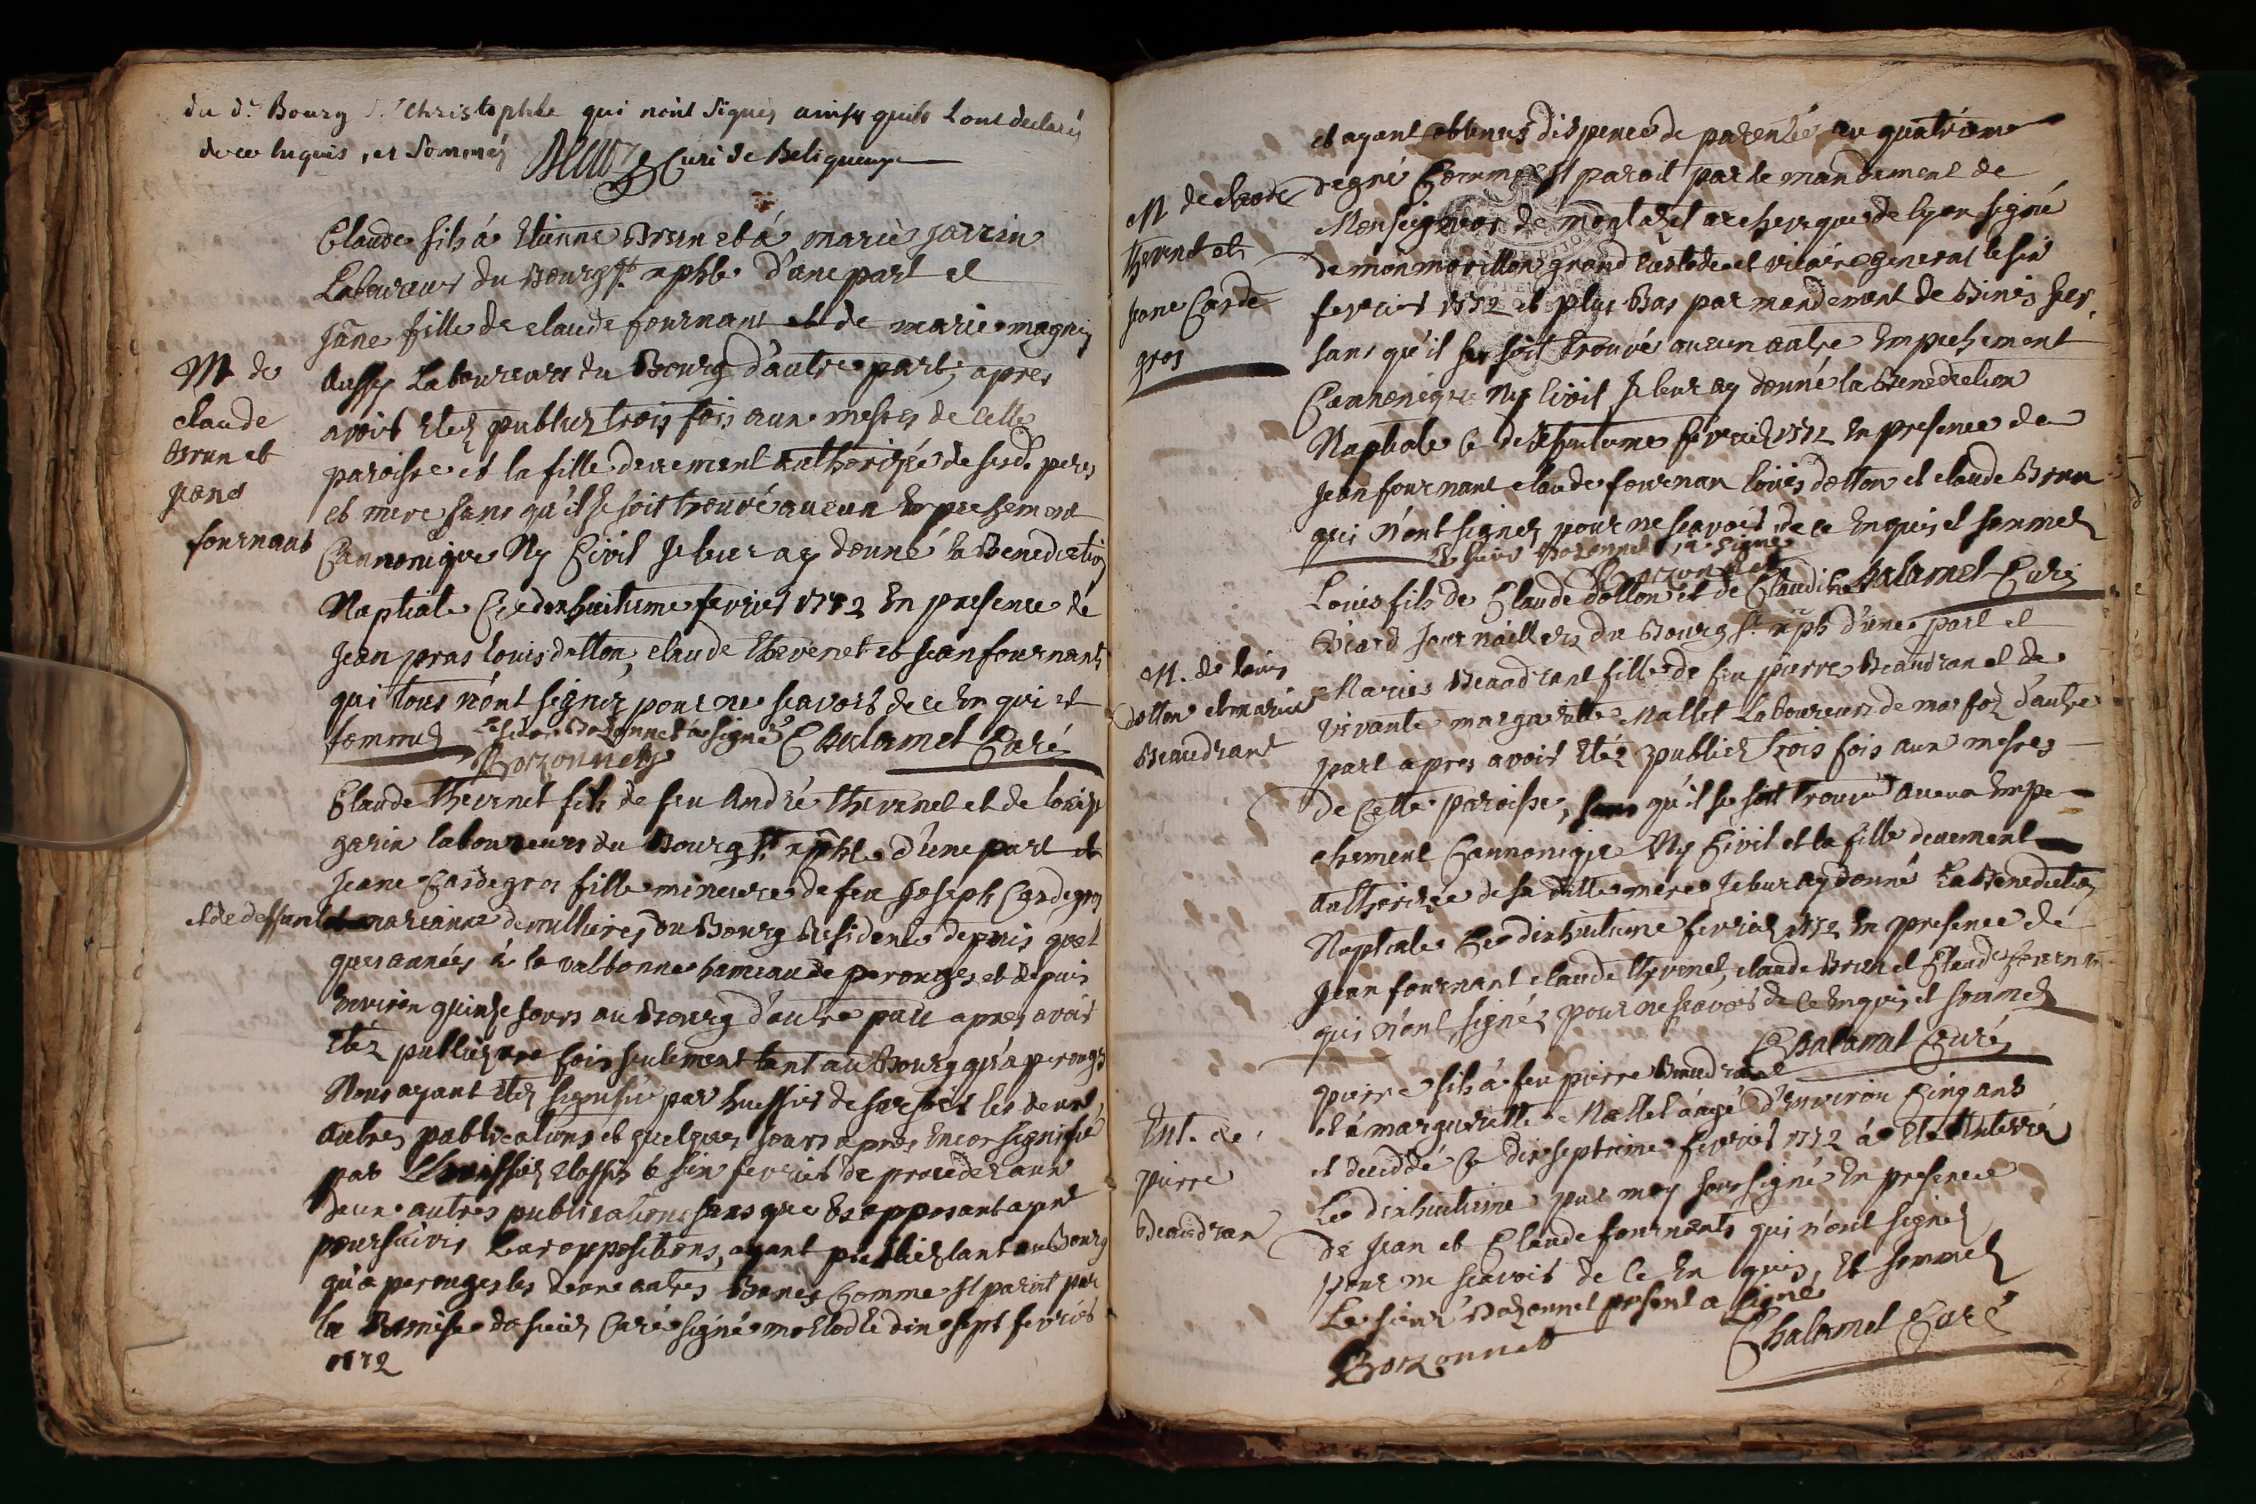 du d.t Bourg S.t Christophle qui nont signés ainsy quils L'ont declarés
de ce Inquis, et Sommés Curé de Beligneux
Claude fils á Etienne Brun et á marie jarrin
Laboureurs du Bourg St xphle d'une part et
Jãne fille de claude fournant et de marie magnin
M. de
claude
Brun et
jane
fournant
Aussy Laboureurs du Bourg d'autre part, apres
avoir Etez publiez trois fois aux messes de cette
paroisse et la fille deuement Authorizée de sesd. pere
et mere sans qu'il se soit trouvé aucun Empechement
Cannonique Ny Civil Je leur ay donné la Benediction
Nuptiale Ce dixhuitieme fevrier 1772 En presence de
Jean pras louis dotton, claude thevenet et Jean fournant
qui tous n'ont signez pour ne scavoir de ce Enquis et
sommez Le sieur Bozonnet a signé Chalamel Curé
Bozonnet
Claude thevenet fils de feu André thevenet et de Louise
garin laboureurs du Bourg St xphle d'une part et
Jeane Cardegros fille mineure de feu Joseph Cardegros
et de deffunte marianne demullieres du Bourg Residente depuis quel
ques années á la valbonne hameau de perouges et depuis
Environ quinze jours au Bourg d'autre part apres avoir
Etéz publiez une fois seulement tant au Bourg qu'a perouges
Nous ayant Etez signifié par huissier de surseoir les deux
autres publications et quelques jours apres Encor signifié
par L'huissier le six fevrier de proceder aux
deux autres publications sans que les opposants ayent
poursuivis leurs oppositions, ayant publiez tant au Bourg
qu'a perouges les deux autres Banes Comme Il paroit par
la Remise du sieur Curé signé le dix sept fevrier
1772
M de claude
thevenet et
Jane Carde
gros
et ayant obtenus dispence de parenté au quatrième
degré Comme Il paroit par le mandement de
Monseigneur de montazet archeveque de lyon signé
de mon morillon grand Custode et vicaire general le six
fevrier 1772 et plus Bas par mandement de
sans qu'il se soit trouvé aucun autre Empechement
Cannonique Ny Civil Je leur ay donné la Benediction
Nuptiale Ce dixhuitieme fevrier 1772 En presence de
Jean fournant claude fournan loüis dotton et claude Brun
qui n'ont signez pour ne scavoir de ce Enquis et sommez
Le sieur Bozonnet a signé
Bozonnet Chalamel Curé
M. de louis
dotton et marie
Beaudrant
Louis fils de Claude dotton et de Claudine
Biard Journailliers du Bourg St xph d'une part et
Marie Beaudrant fille de feu pierre Beaudran et de
vivante marguerite Mallet Laboureurs de d'autre
part apres avoir Etéz publiez trois fois aux messes
de Cette paroisse, sans qu'il se soit trouvé aucun Empe
chement Cannonique Ny Civil et la fille deuement
authorizée de sa ditte mere Je leur ay donné La Benediction
Nuptiale Le dixhuitieme fevrier 1772 En presence de
Jean fournant claude thevenet, claude Brun et Claude fournan
qui n'ont signéz pour ne scavoir de Ce Enquis et sommez
Chalamel Curé
Ent. de
pierre
Beaudran
pierre fils á feu pierre Beaudrant
et á marguerite Mallet ángé d'Environ Cinq ans
et decedé Ce dix septieme fevrier 1772 á Eté Enterré
Le dixhuitieme par moy soussigné En presence
de Jean et Claude fournants qui n'ont signéz
pour ne scavoir de Ce Enquis, Et sommez
Le sieur Bozonnet present a signé
Bozonnet Chalamel Curé